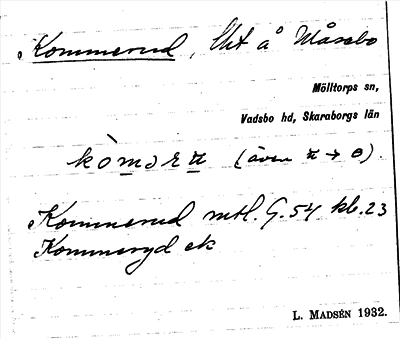 Kommerud, Lht å Måsebo
Mölltorps sn,
Vadsbo hd, Skaraborgs län
kòmɔrʉ (även ʉ → ɵ).
Kommerud mtl. G. 54 kb. 23
Kommeryd ek
L. MADSÉN 1932.